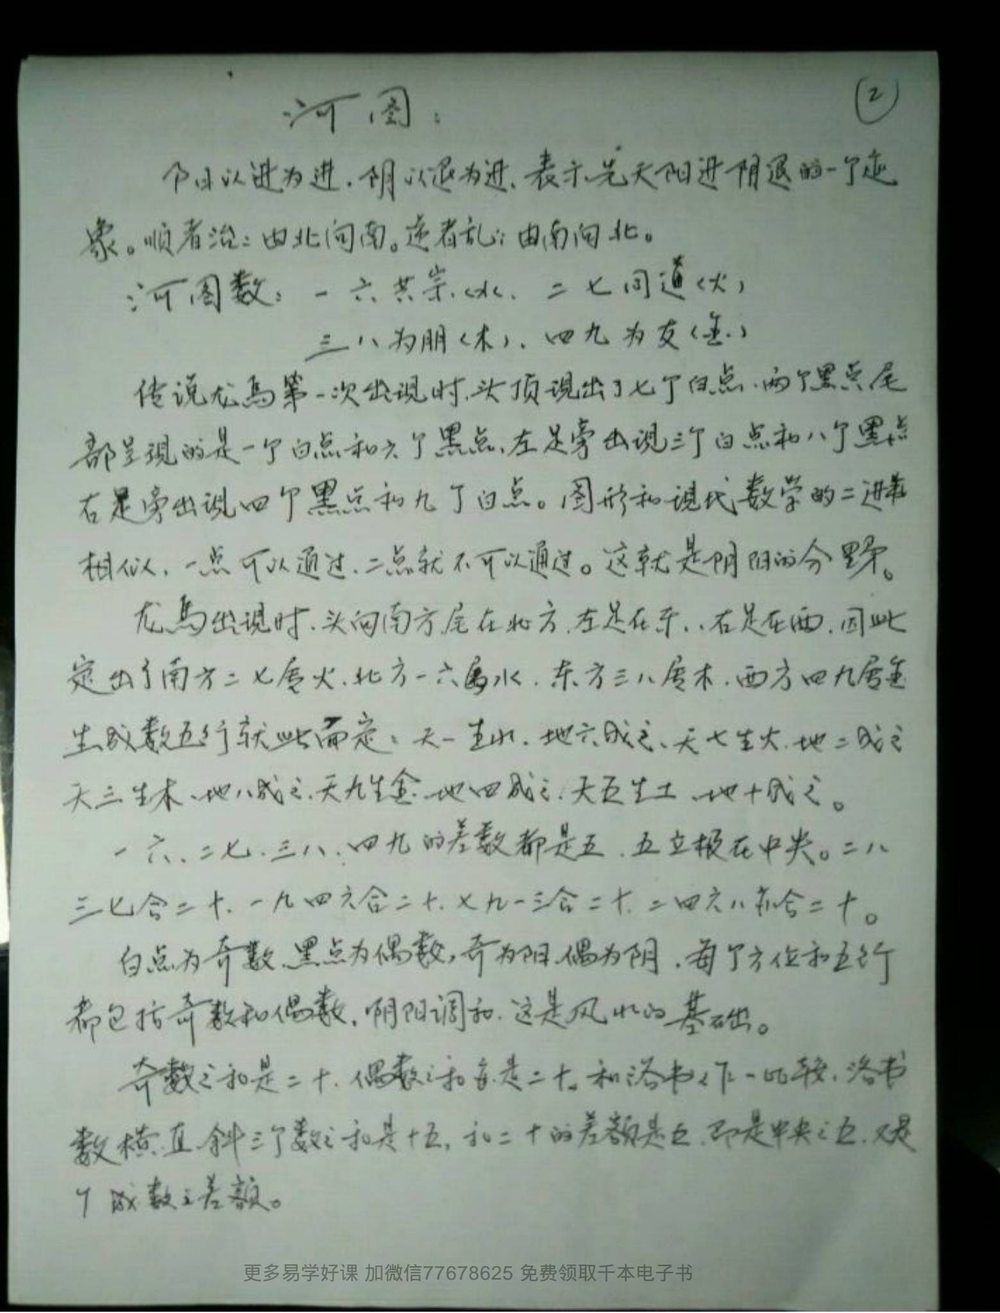 ②
河图：
阳以进为进、阴以退为进、表示先天阳进阴退的一个迹
象。顺者治：由北向南。逆者乱：由南向北。
河图数：一六共宗（水、二七同道（火）
三八为朋（木）、四九为友（金）
传说龙馬第一次出现时、头顶现出了七个白点、两个黑点尾
部呈现的是一个白点和六个黑点、左足旁出现三个白点和八个黑点
右足旁出现四个黑点和九个白点。图形和现代数学的二进数
相似、一点可以通过、二点就不可以通过。这就是阴阳的分野。
龙馬出现时、头向南方尾在北方、左足在东、右足在西、因此
定出了南方二七居火、北方一六属水、东方三八居木、西方四九居金
生成数五行就此而定：天一生水、地六成之、天七生火、地二成之
天三生木、地八成之、天九生金、地四成之、天五生土、地十成之。
一六、二七、三八、四九的差数都是五、五立极在中央。二八
三七合二十、一九四六合二十、七九一三合二十、二四六八亦合二十。
白点为奇数、黑点为偶数，奇为阳、偶为阴、每个方位和五行
都包括奇数和偶数，阴阳调和、这是风水的基础。
奇数之和是二十、偶数之和亦是二十。和洛书作一比较、洛书
数横、直、斜三个数之和是十五，和二十的差额是五、即是中央之五、又是
个成数之差额。
更多易学好课 加微信77678625 免费领取千本电子书